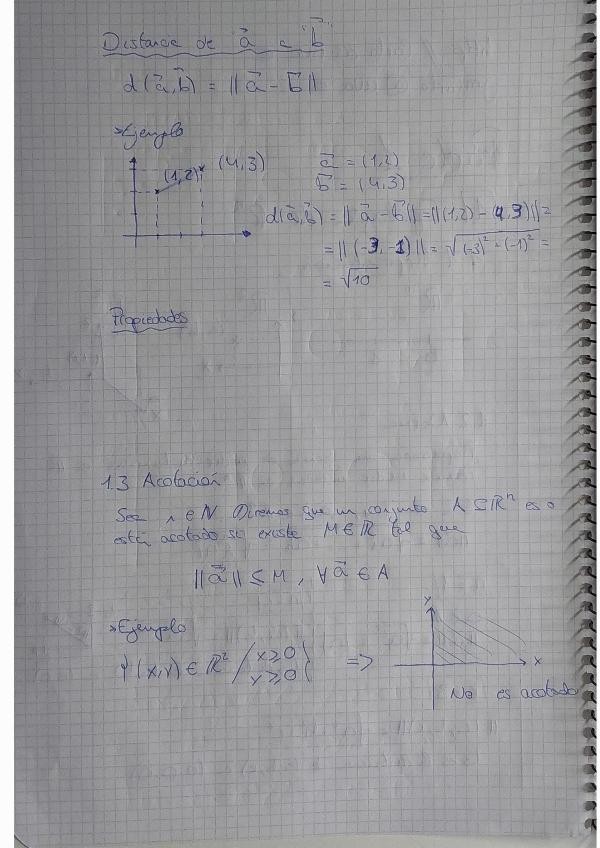 Distancia de a⃗ a "b⃗"
d(a⃗,b⃗) = ||a⃗ - b⃗||
>Ejemplo
(1,2) (4,3)
a⃗ = (1,2)
b⃗ = (4,3)
d(a⃗,b⃗) = ||a⃗ - b⃗|| = ||(1,2) - (4,3)|| =
= ||(-3,-1)|| = √((-3)² + (-1)²) =
= √10
Propiedades
1.3 Acotación
Sea n ∈ N Diremos que un conjunto A ⊆ ℝⁿ es o
está acotado si existe M ∈ ℝ tal que
||a⃗|| ≤ M, ∀ a⃗ ∈ A
>Ejemplo
{(x,y) ∈ ℝ² / x≥0 y≥0} =>
y
x
No es acotado